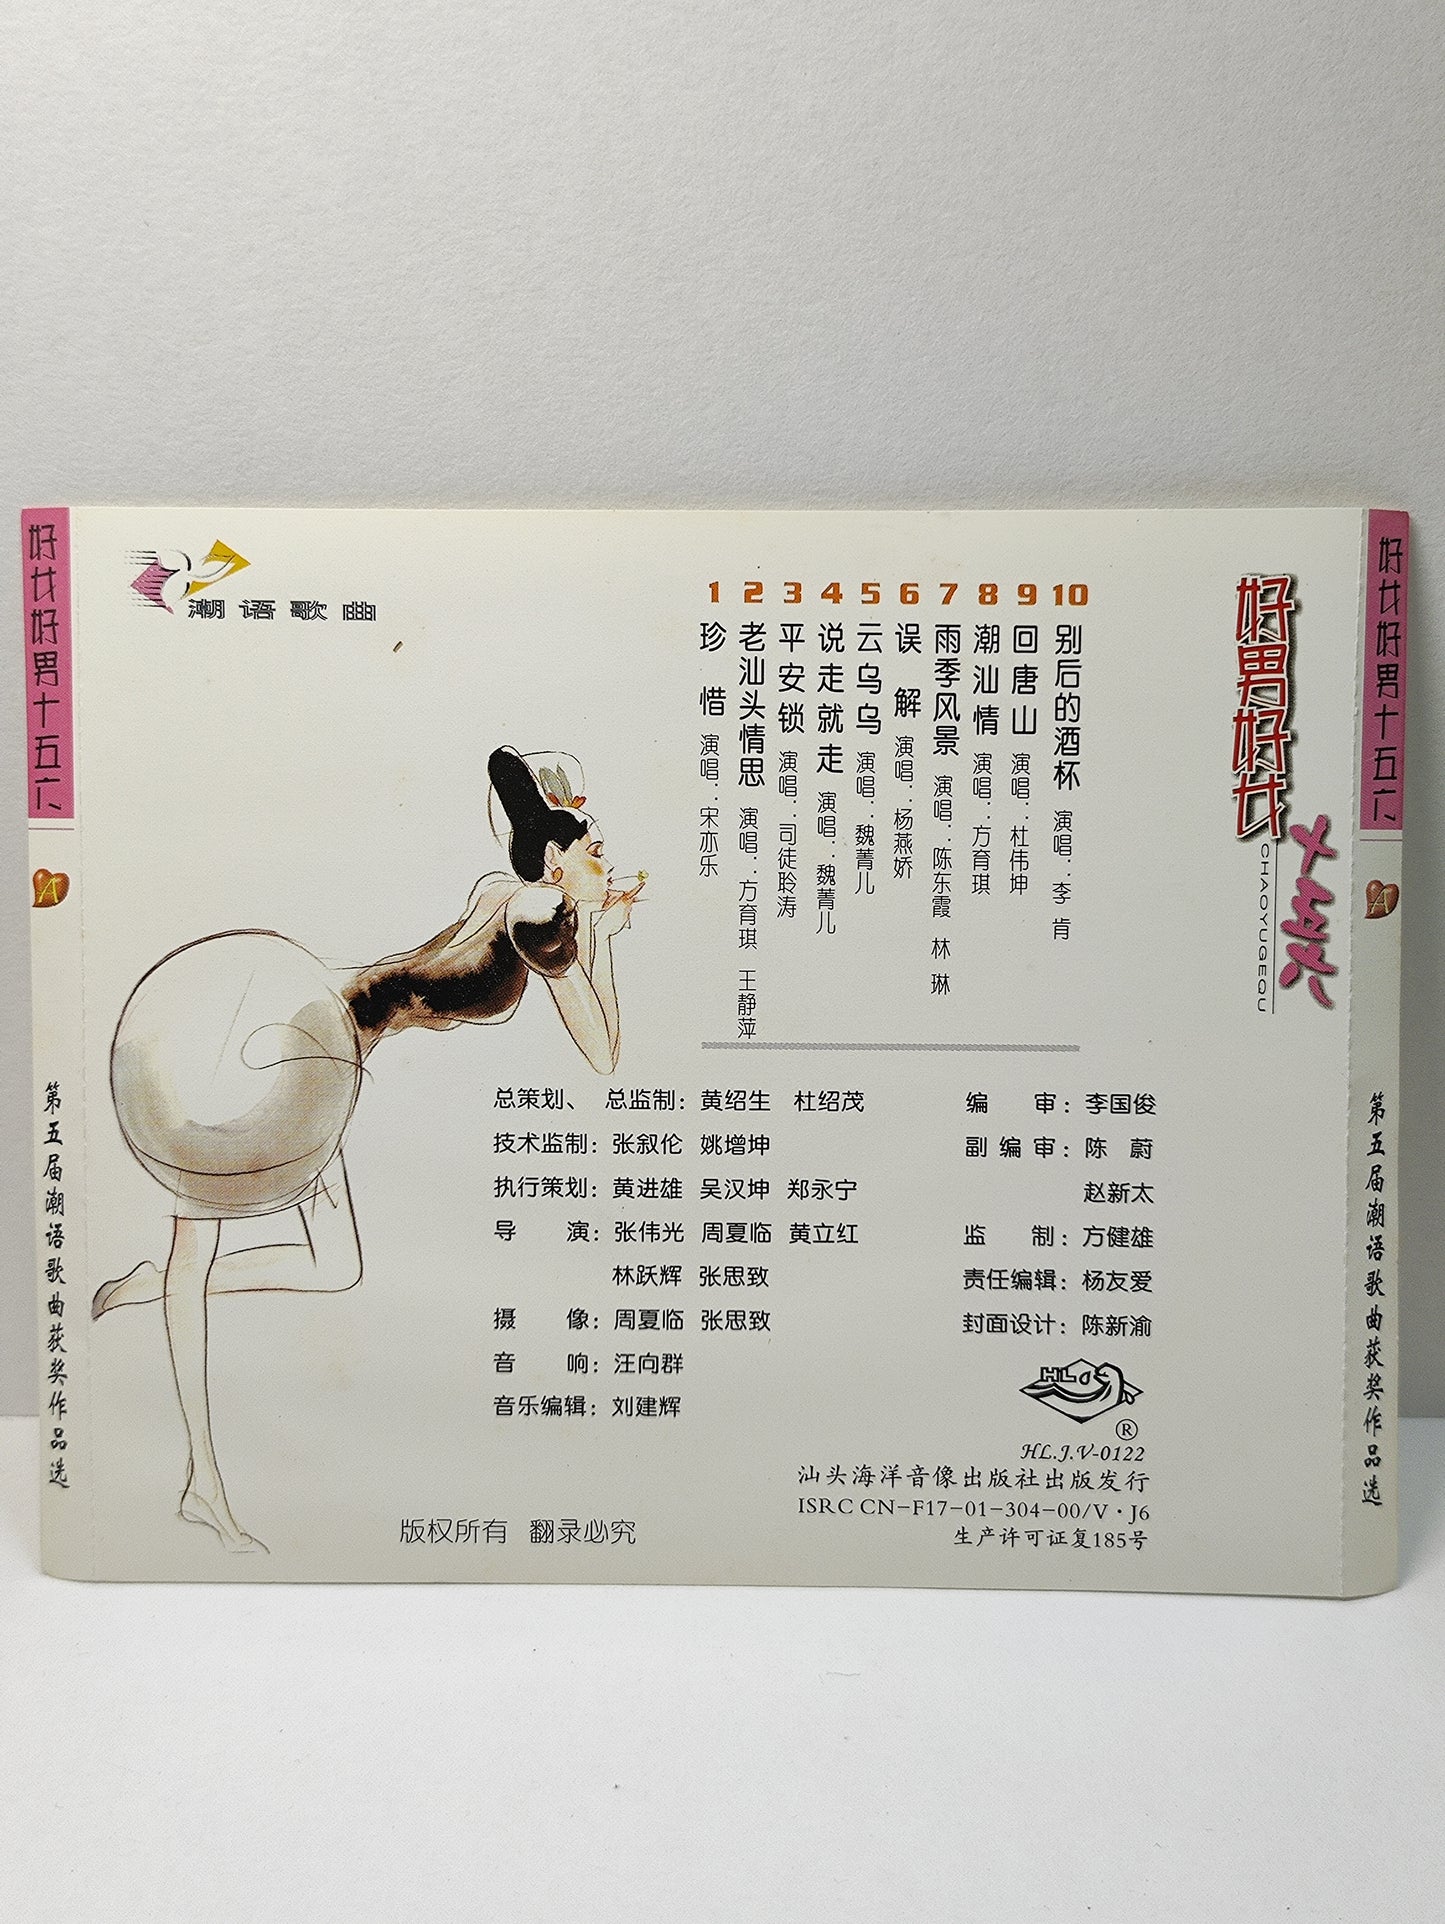 好女好男十五六
A
第五届潮语歌曲获奖作品选
潮语歌曲
1 珍惜 演唱：宋亦乐
2 老汕头情思 演唱：方育琪 王静萍
3 平安锁 演唱：司徒聆涛
4 说走就走 演唱：魏菁儿
5 云乌乌 演唱：魏菁儿
6 误解 演唱：杨燕娇
7 雨季风景 演唱：陈东霞 林琳
8 潮汕情 演唱：方育琪
9 回唐山 演唱：杜伟坤
10 别后的酒杯 演唱：李肯
好男好女
十五六
CHAOYUGEQU
总策划、 总监制：黄绍生 杜绍茂
技术监制：张叙伦 姚增坤
执行策划：黄进雄 吴汉坤 郑永宁
导 演：张伟光 周夏临 黄立红
林跃辉 张思致
摄 像：周夏临 张思致
音 响：汪向群
音乐编辑：刘建辉
编 审：李国俊
副编审：陈 蔚
赵新太
监 制：方健雄
责任编辑：杨友爱
封面设计：陈新渝
HL
®
HL.J.V-0122
汕头海洋音像出版社出版发行
ISRC CN-F17-01-304-00/V·J6
生产许可证复185号
版权所有 翻录必究
好女好男十五六
A
第五届潮语歌曲获奖作品选